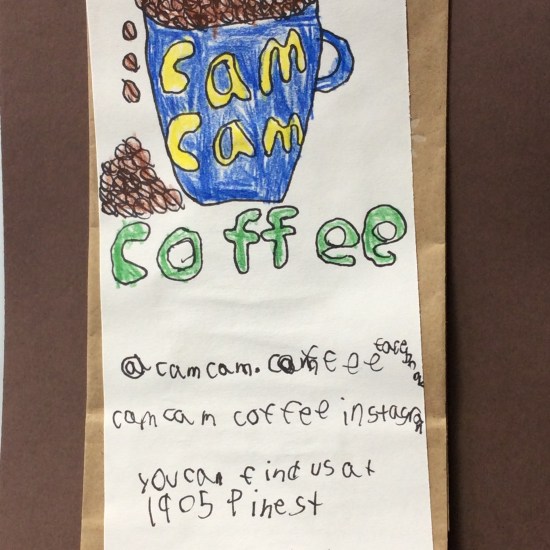 cam
cam
coffee
@camcam.coffee
camcam coffee instagram
you can find us at
1905 Pinest